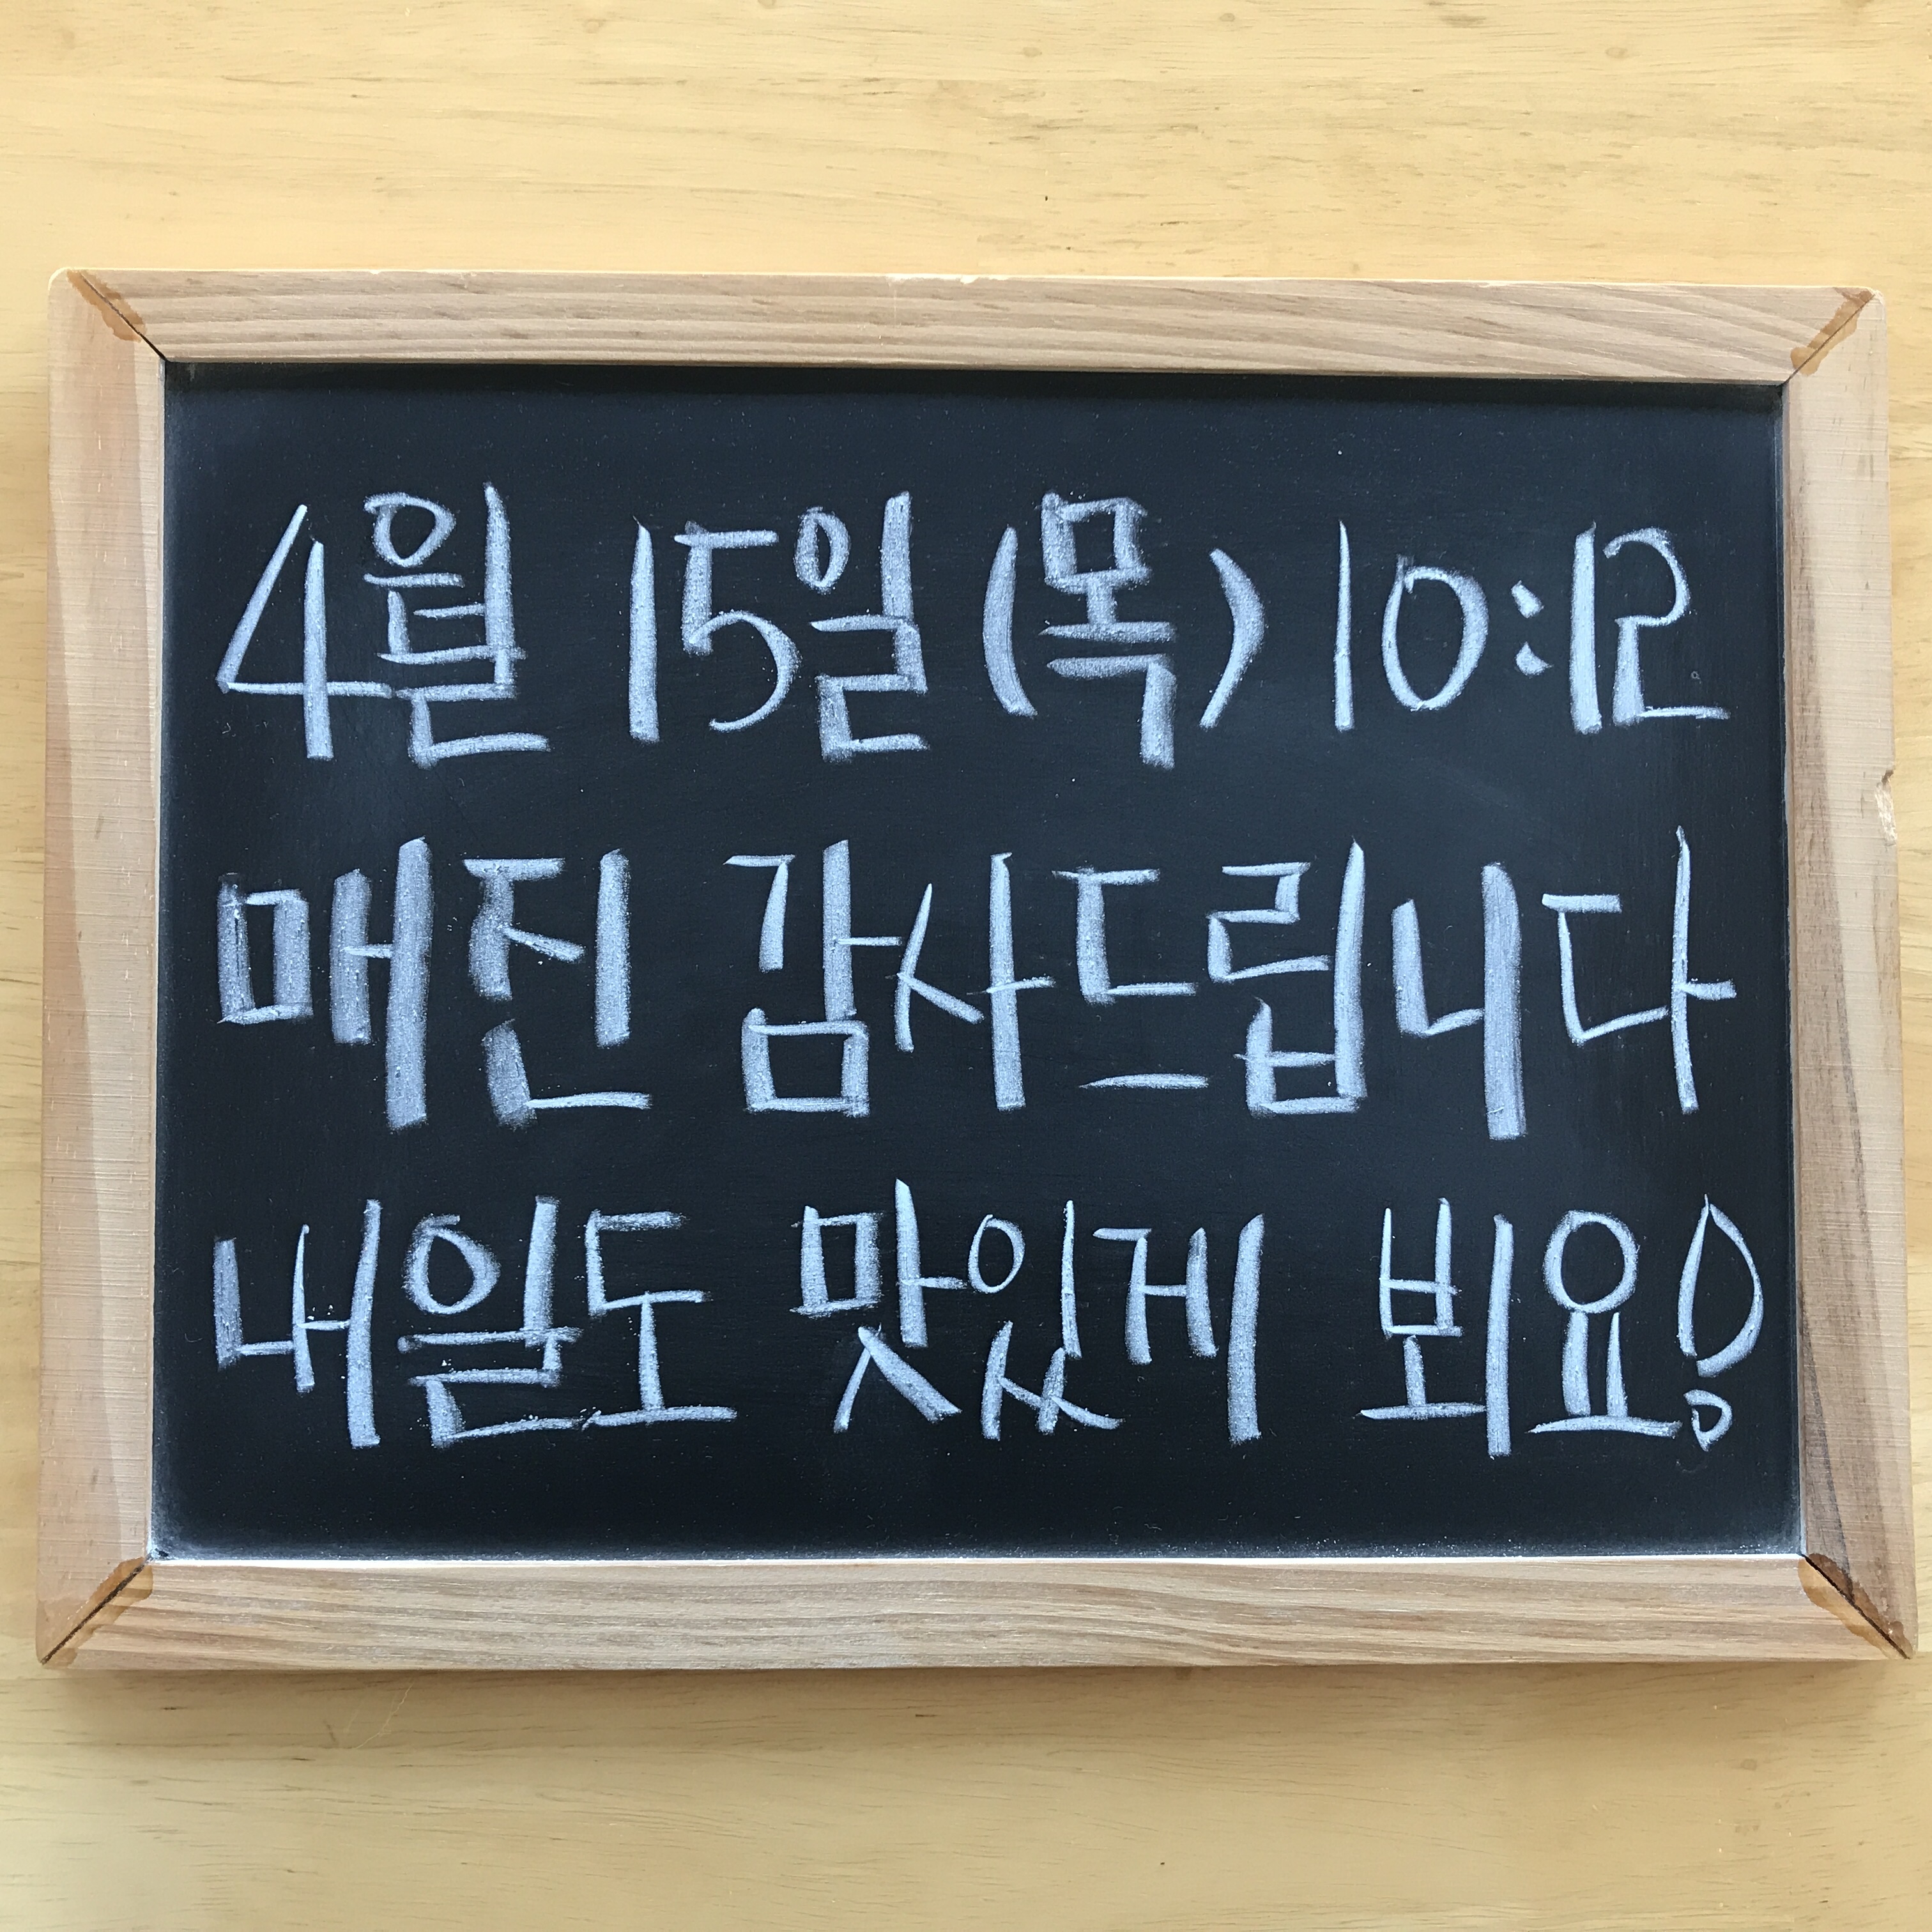 4월 15일(목) 10:12
매진 감사드립니다
내일도 맛있게 뵈요!